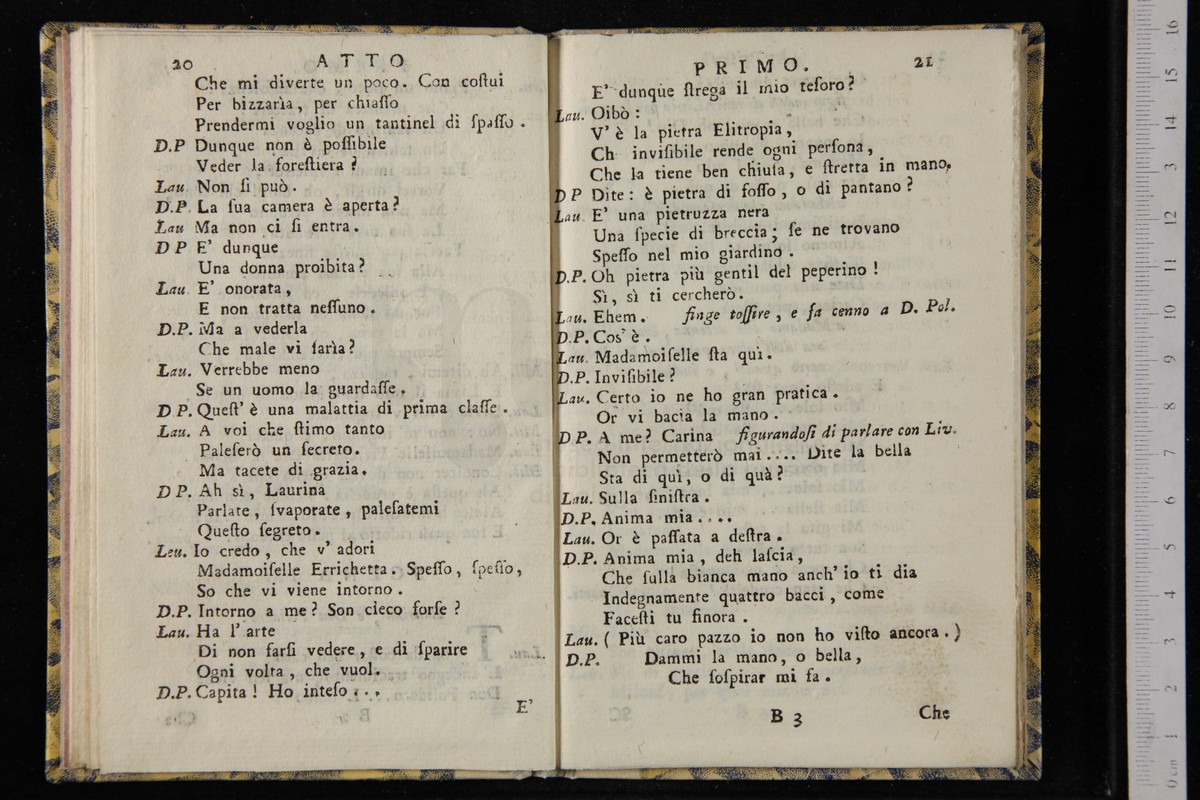 20 ATTO
Che mi diverte un poco. Con coſtui
Per bizzarìa, per chiaſſo
Prendermi voglio un tantinel di ſpaſſo.
D.P Dunque non è poſſibile
Veder la foreſtiera?
Lau. Non ſi può.
D.P. La ſua camera è aperta?
Lau Ma non ci ſi entra.
D P E' dunque
Una donna proibita?
Lau. E' onorata,
E non tratta neſſuno.
D.P. Ma a vederla
Che male vi ſarìa?
Lau. Verrebbe meno
Se un uomo la guardaſſe.
D P. Queſt' è una malattia di prima claſſe.
Lau. A voi che ſtimo tanto
Paleſerò un ſecreto.
Ma tacete di grazia.
D P. Ah sì, Laurina
Parlate, ſvaporate, paleſatemi
Queſto ſegreto.
Lau. Io credo, che v' adori
Madamoiſelle Errichetta. Speſſo, ſpeſſo,
So che vi viene intorno.
D.P. Intorno a me? Son cieco forſe?
Lau. Ha l' arte
Di non farſi vedere, e di ſparire
Ogni volta, che vuol.
D.P. Capita! Ho inteſo...
E'
PRIMO. 21
E' dunque ſtrega il mio teſoro?
Lau. Oibò:
V' è la pietra Elitropia,
Ch inviſibile rende ogni perſona,
Che la tiene ben chiuſa, e ſtretta in mano.
D P Dite: è pietra di foſſo, o di pantano?
Lau. E' una pietruzza nera
Una ſpecie di breccia; ſe ne trovano
Speſſo nel mio giardino.
D.P. Oh pietra più gentil del peperino!
Sì, sì ti cercherò.
Lau. Ehem. finge toſſire, e fa cenno a D. Pol.
D.P. Cos' è.
Lau. Madamoiſelle ſta quì.
D.P. Inviſibile?
Lau. Certo io ne ho gran pratica.
Or vi bacia la mano.
D P. A me? Carina figurandoſi di parlare con Liv.
Non permetterò mai.... Dite la bella
Sta di quì, o di quà?
Lau. Sulla ſiniſtra.
D.P. Anima mia....
Lau. Or è paſſata a deſtra.
D.P. Anima mia, deh laſcia,
Che ſulla bianca mano anch' io ti dia
Indegnamente quattro bacci, come
Faceſti tu finora.
Lau. (Più caro pazzo io non ho viſto ancora.)
D.P. Dammi la mano, o bella,
Che ſoſpirar mi fa.
B 3 Che